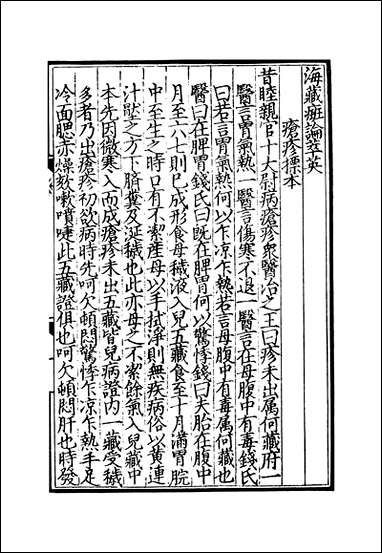 海藏癍論萃英
瘡疹標本
昔睦親官十大尉病瘡疹衆醫治之王曰疹未出属何藏府一
醫言胃氣熱一醫言傷寒不退一醫言在母腹中有毒錢氏
曰若言胃氣熱何以乍凉乍熱若言母腹中有毒属何藏也
醫曰在脾胃錢氏曰旣在脾胃何以驚悸錢曰夫胎在腹中
月至六七則已成形食母穢液入兒五藏食至十月滿胃脘
中至生之時口有不㓗産母以手拭淨則無疾病俗以黄連
汁壓之方下臍糞及涎穢也此亦母之不㓗餘氣入兒藏中
本先因微寒入而成瘡疹未出五藏皆見病證内一藏受穢
多者乃出瘡疹初欲病時先呵欠頓悶驚悸乍凉乍熱手足
冷面腮赤燥欬嗽噴嚏此五藏證俱也呵欠頓悶肝也時發